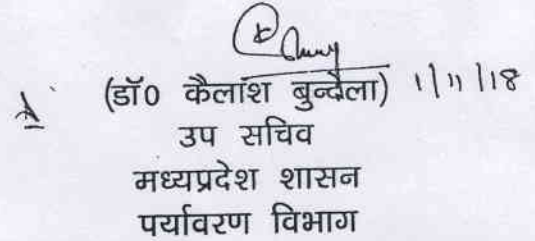 (डॉ0 कैलाश बुन्देला) 1/11/18
उप सचिव
मध्यप्रदेश शासन
पर्यावरण विभाग